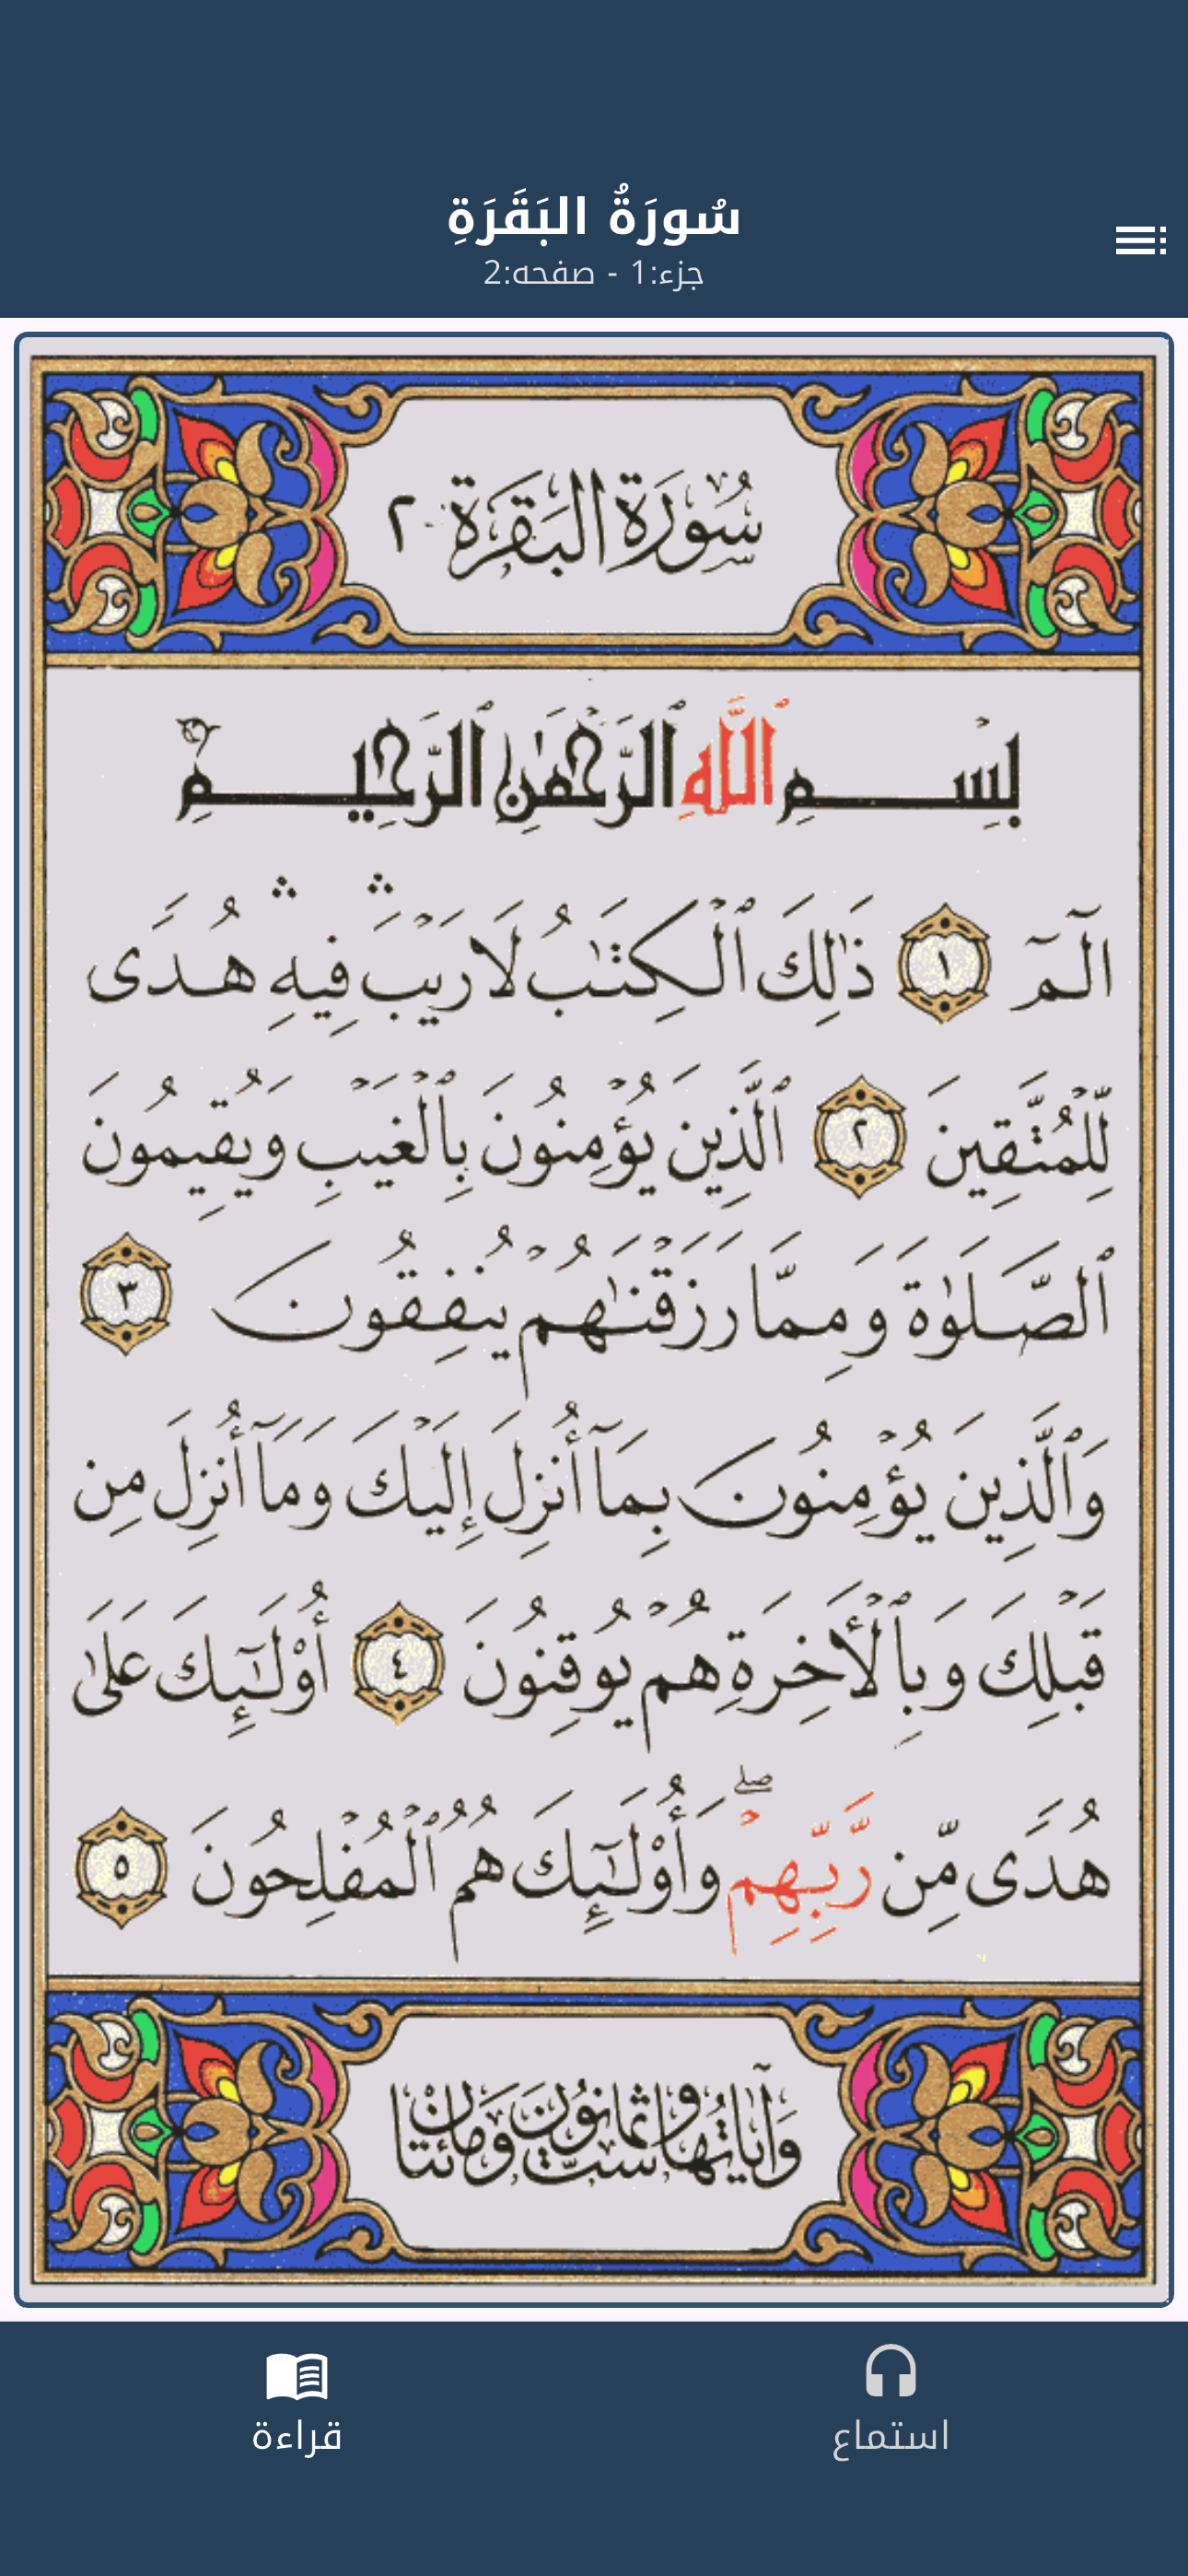 سُورَةُ البَقَرَةِ
جزء:1 - صفحه:2
سُورَةُ البَقَرَةِ ٢
بِسْمِ ٱللَّهِ ٱلرَّحْمَٰنِ ٱلرَّحِيمِ
الٓمٓ ١ ذَٰلِكَ ٱلْكِتَٰبُ لَا رَيْبَ ۛ فِيهِ ۛ هُدًى
لِّلْمُتَّقِينَ ٢ ٱلَّذِينَ يُؤْمِنُونَ بِٱلْغَيْبِ وَيُقِيمُونَ
ٱلصَّلَوٰةَ وَمِمَّا رَزَقْنَٰهُمْ يُنفِقُونَ ٣
وَٱلَّذِينَ يُؤْمِنُونَ بِمَآ أُنزِلَ إِلَيْكَ وَمَآ أُنزِلَ مِن
قَبْلِكَ وَبِٱلْأَخِرَةِ هُمْ يُوقِنُونَ ٤ أُوْلَٰٓئِكَ عَلَىٰ
هُدًى مِّن رَّبِّهِمْ ۖ وَأُوْلَٰٓئِكَ هُمُ ٱلْمُفْلِحُونَ ٥
وَآيَاتُهَا سِتٌّ وَثَمَانُونَ وَمَائَتَانْ
استماع
قراءة